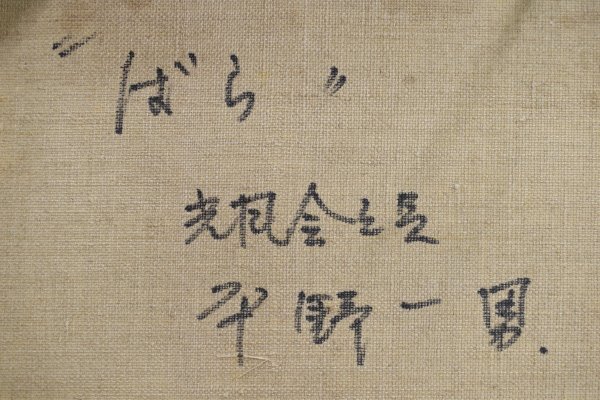 "ばら"
光風会会員
平野一男.